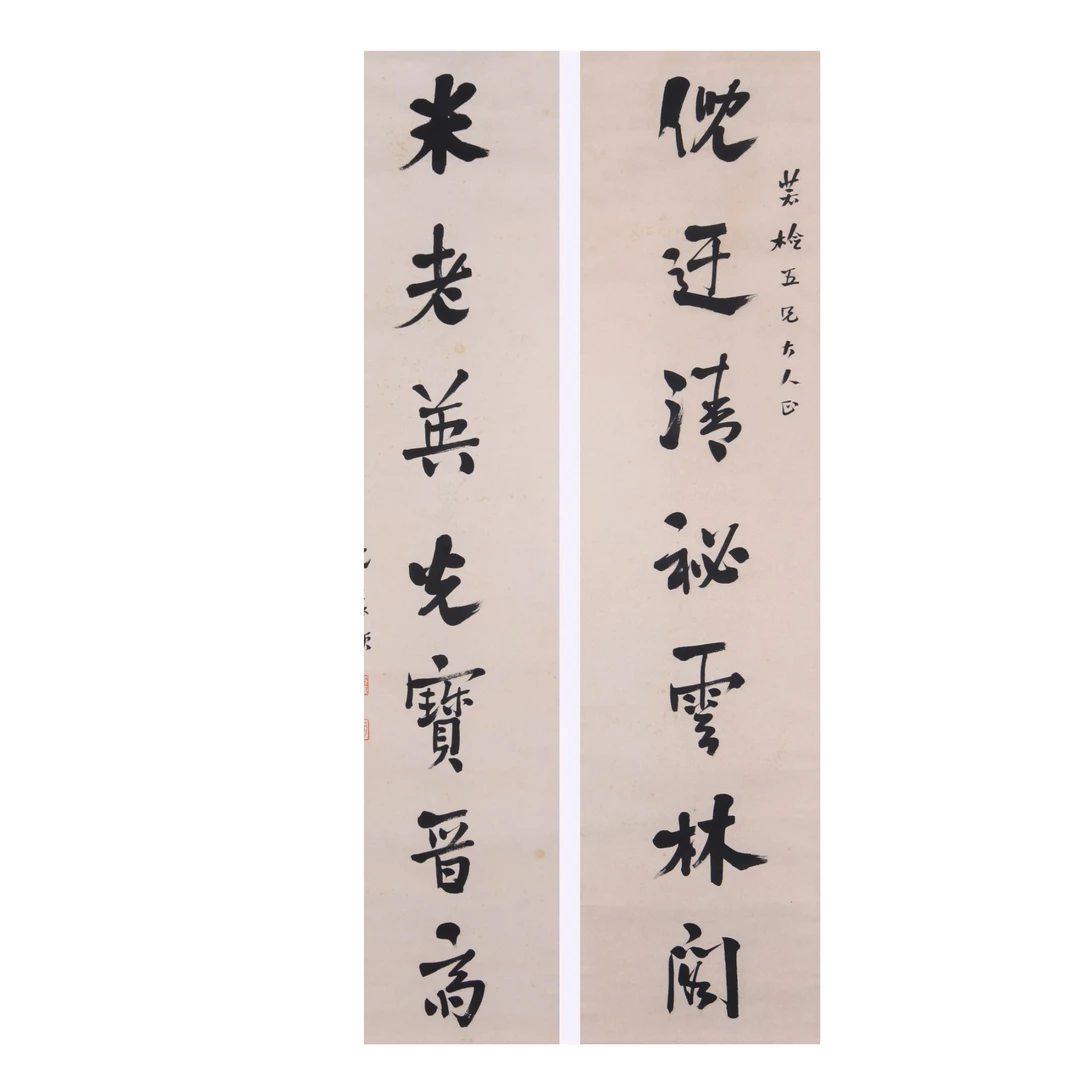 五兄大人正
倪迂清祕雲林閣
米老英光寶晉齋